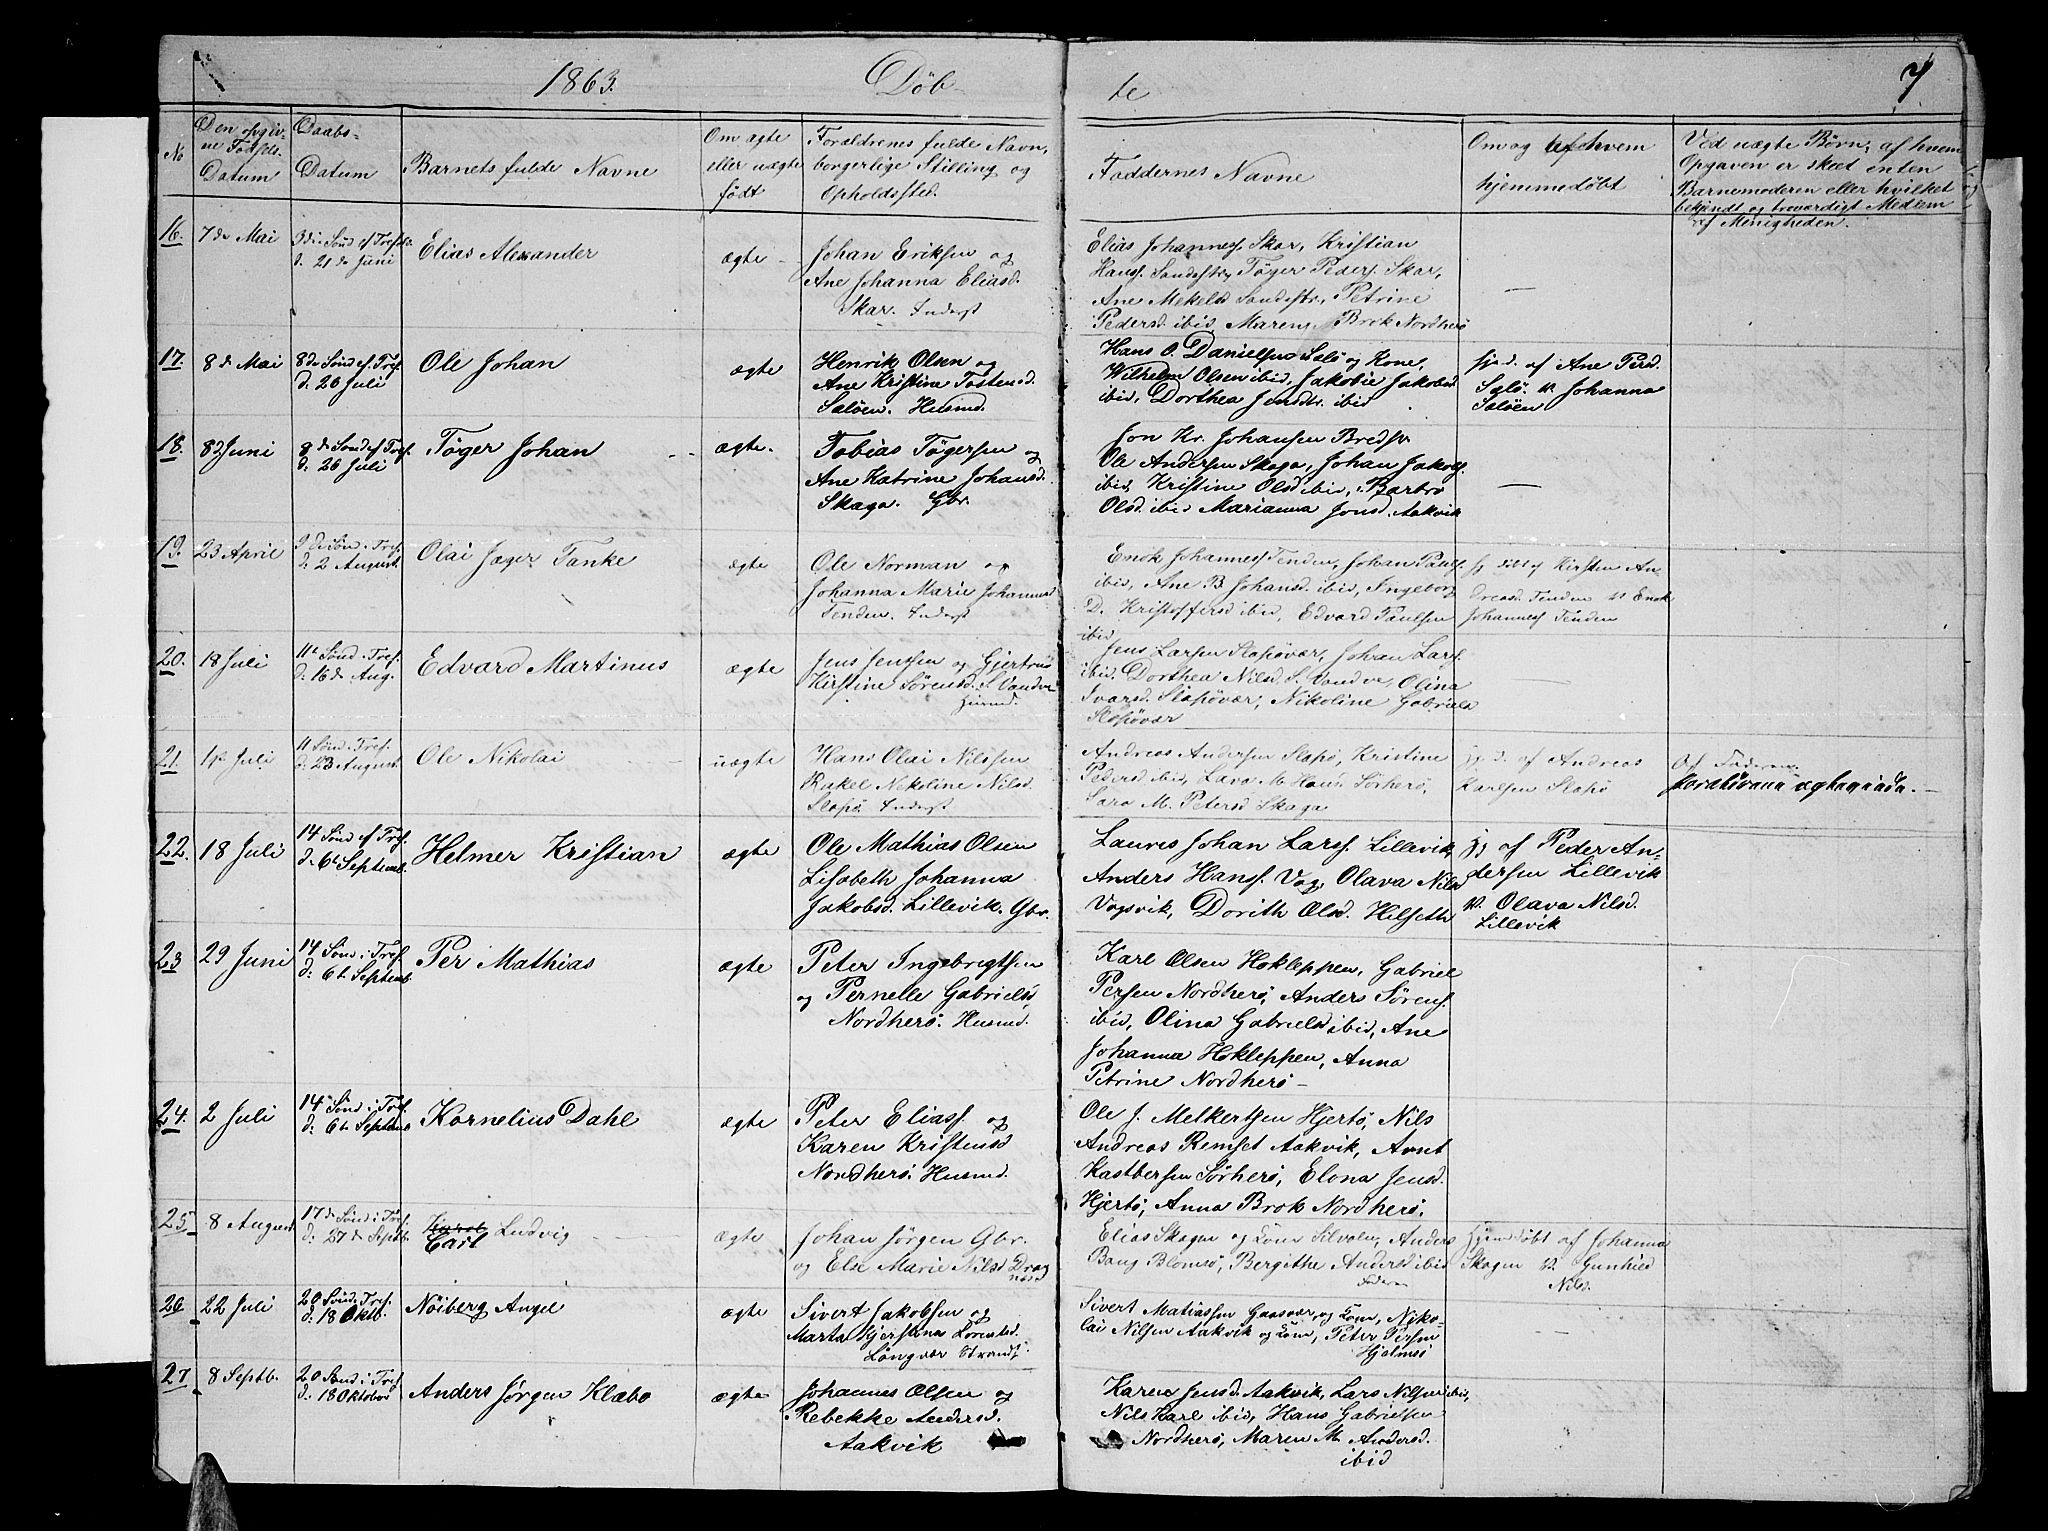 1863. Døb- te 7
No
Den opgivne Fødsels Datum
Daabs-Datum
Barnets fulde Navne
Om ægte eller uægte født
Forældrenes fulde Navn, borgerlige Stilling og Opholdssted.
Faddernes Navne
Om og af hvem hjemmedøbt
Ved uægte Børn, af hvem Opgaven er skeet enten Barnemoderen eller hvilket bekjendt og troværdigt Medlem af Menigheden.
16. 7de Mai
3die Sønd ef Trefds. d. 21de Juni
Elias Alexander
ægte -
Johan Eriksen og
Ane Johanna Eliasd.
Skar. Inderst
Elias Johanness. Skar, Kristian
Hanss. Sandestr, Tøger Peders. Skar,
Ane Mekelsd Sandestr, Petrine
Pedersd. ibid, Maren Brok Nordherø
—
17. 8de Mai
8de Sønd ef. Tref. d. 26 Juli
Ole Johan
ægte
Henrik Olsen og
Ane Kristine Tostensd.
Saløen. Husmd.
Hans O. Danielsen Salø og Kone,
Wilhelm Olsen ibid, Jakobie Jakobsd
ibid, Dorthea Jensdr. ibid
hjd. af Ane Persd.
Salø. v. Johanna
Saløen
18. 8d Juni
8de Sønd ef Tref. d. 26 Juli
Tøger Johan
ægte.
Tobias Tøgersen og
Ane Katrine Johansd.
Skaga. Gbr.
Jon Kr. Johansen Bredsv.
Ole Andersen Skaga, Johan Jakobs.
ibid, Kristine Olsd ibid, Barbro
Olsd. ibid Marianna Jonsd. Aakvik
—
19. 23 April
9de Sønd i Tref. d. 2 August
Olai Jæger Tanke
ægte
Ole Norman og
Johanna Marie Johannesd
Tenden. Inderst
Enok Johanness Tenden, Johan Pauls.
ibid, Ane B. Johansd. ibid, Ingeborg
D. Kristoffersd ibid, Edvard Paulsen
ibid
hj døbt af Kirsten An-
dreasd. Tenden v. Enok
Johanness Tenden
20. 18 Juli
11te Sønd i Tref. d. 16de Aug.
Edvard Martinus
ægte
Jens Jenssen og Gjertrud
Kirstine Sørensd. S. Vandve
Husmd.
Jens Larsen Slapøvær, Johan Lars.
ibid. Dorthea Nilsd. S. Vandve, Olina
Ivarsd. Slapøvær, Nikoline Gabrielsd
Slapøvær
—
21. 14 Juli
11 Sønd i Tref. d. 23 August
Ole Nikolai
uægte
Hans Olai Nilssen
Rakel Nekoline Nilsd.
Slapø Inderst
Andreas Andersen Slapø, Kristine
Pedersd ibid, Lava M. Hans. Sørherø,
Sara M. Petersd Skaga
hj. d. af Andreas
Karlsen Slapø
Af Faderen
22. 18 Juli
14 Sønd ef Tref. d. 6te Septemb.
Helmer Kristian
ægte
Ole Mathias Olsen
Lisabeth Johanna
Jakobsd. Lillevik. Gbr.
Laures Johan Larss. Lillevik,
Anders Hanss. Vag, Olava Nilsd
Vagsvik, Dorith Olsd. Hilseth
hj af Peder An-
dersen Lillevik
v. Olava Nilsd.
Lillevik
23 29 Juni
14 Sønd i Tref. d. 6te Septemb
Per Mathias
ægte
Peter Ingebrigtsen
og Pernelle Gabrielsd
Nordherø. Husmd.
Karl Olsen Hokleppen, Gabriel
Persen Nordherø, Anders Sørens.
ibid, Olina Gabrielsd ibid, Ane
Johanna Hokleppen, Anna
Petrine Nordherø -
24. 2 Juli
14 Sønd i Tref. d. 6te Septemb
Kornelius Dahl
ægte
Peter Eliass. og
Karen Kristensd
Nordherø. Husmd.
Ole J. Melkertsen Hjertø, Nils
Andreas Remset Aakvik, Arnt
Kastbersen Sørherø, Elona Jensd.
Hjertø, Anna Brok Nordherø.
25 8 August
17de Sønd i Tref. d. 27de Septb.
Carl Ludvig
ægte
Johan Jørgen Gbr.
og Else Marie Nilsd Drag
næsd
Elias Skagen og Kone Silvalen, Anders
Bang Blomsø, Bergithe Andersd ibid
Faderen
Hjemdøbt af Johanna
Skagen v. Gunhild
Nilsd.
26 22 Juli
20 Sønd i Tref. d. 18 Oktb.
Nøiberg Angel
ægte
Sivert Jakobsen og
Marta Kjerstina Lorentsd.
Løngvær Strands.
Sivert Matiassen Gaasvær og Kone, Niko-
lai Nilsen Aakvik og Kone, Peter Persen
Hjelmsø
—
27 8 Septb.
20 Sønd i Tref. d. 18 Oktober
Anders Jørgen Klæbo
ægte
Johannes Olsen og
Rebekke Andersd.
Aakvik
Karen Jensd. Aakvik, Lars Nilsen ibid,
Nils Karl ibid, Hans Gabrielsen
Nordherø, Maren M. Andersd.
ibid
—